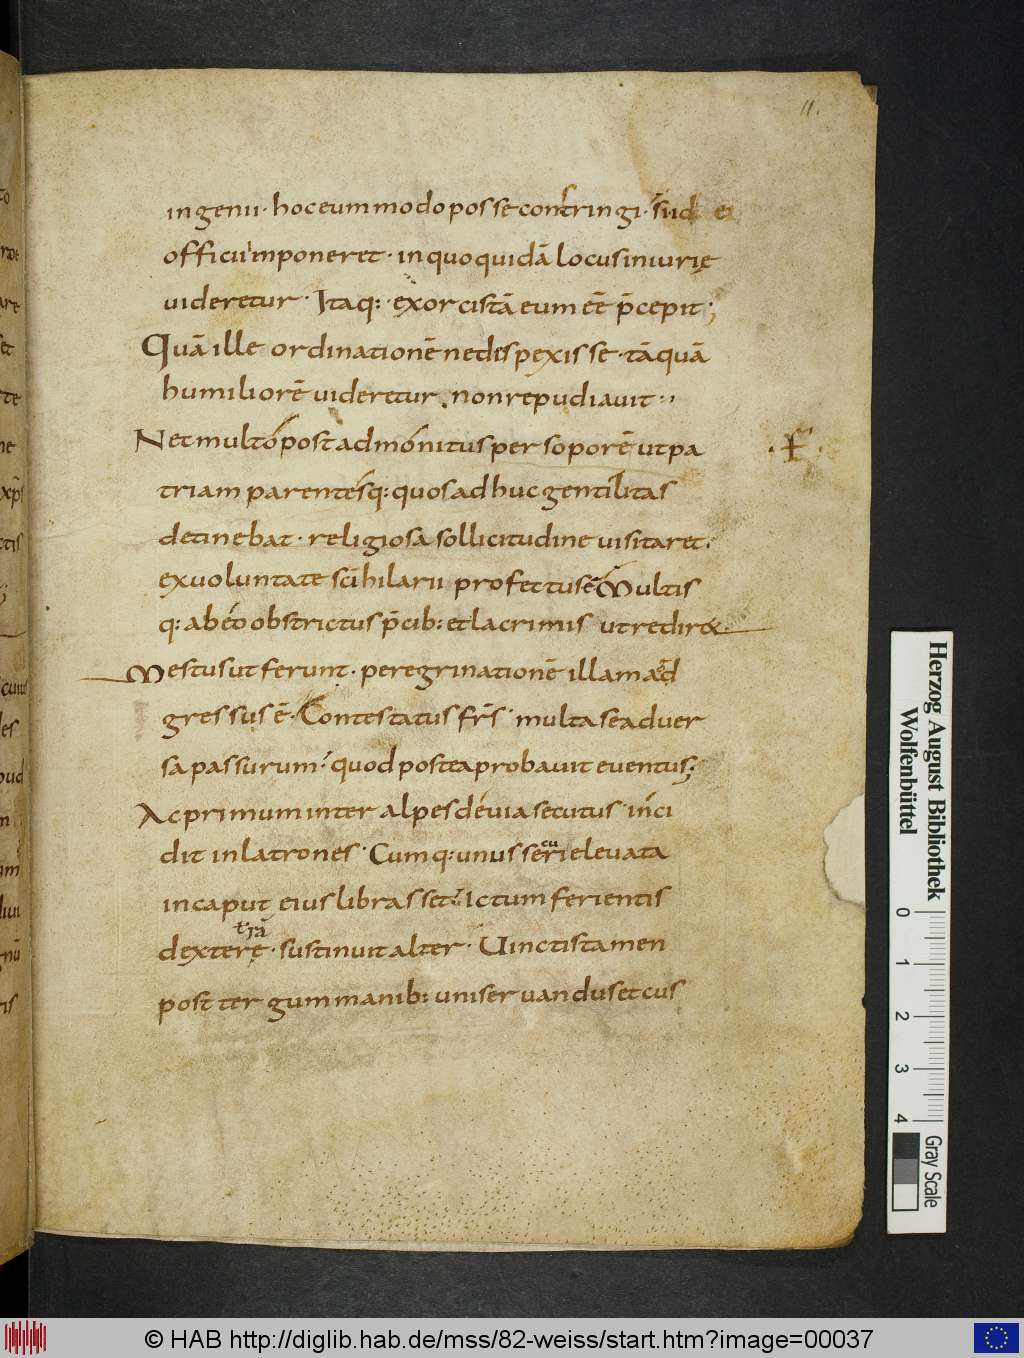 11.
ingenii· hoc eum modo posse constringi· si id ei
officii imponeret· in quo quidā locus iniurię
videretur· Itaq: exorcistā eum eē p̄cepit;
Quā ille ordinationē ne despexisse· tāquā
humiliorē videretur, non repudiavit··
Nec multo post admonitus per soporē ut pa
triam parentesq: quos adhuc gentilitas
detinebat· religiosa sollicitudine visitaret·
ex voluntate sc̄i hilarii profectus ē Multis
q: ab eo obstrictus p̄cib: et lacrimis ut redir&
Mestus ut ferunt· peregrinationē illam ad
gressus ē· Contestatus fr̄s· multa se adver
sa passurum· quod postea probavit eventus;
Ac primum inter alpes devia secutus· inci
dit in latrones· Cumq: unus securi elevata
in caput eius librasset· Ictum ferientis
dexterę· sustinuit alter· Vinctis tamen
post tergum manib: uni servandus et cus
Herzog August Bibliothek
Wolfenbüttel
0 1 2 3 4
Gray Scale
© HAB http://diglib.hab.de/mss/82-weiss/start.htm?image=00037